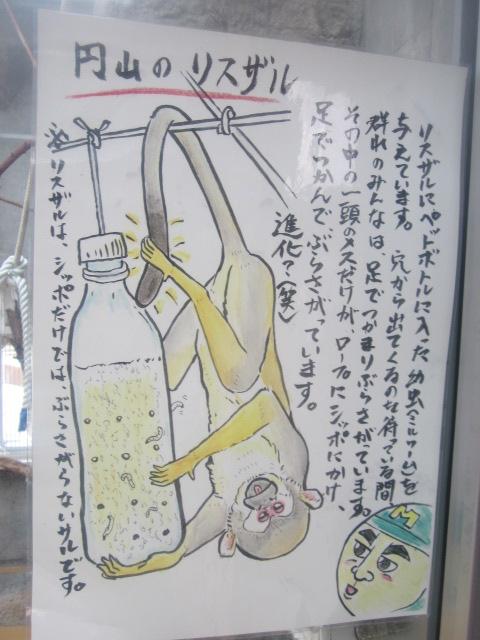 円山のリスザル
リスザルにペットボトルに入った幼虫(ミルワーム)を
与えています。穴から出てくるのを待っている間
群れのみんなは、足でつかまりぶらさがています。
その中の一頭のメスだけが、ロープにシッポにかけ、
足でつかんで、ぶらさがっています。
進化?(笑)
※リスザルは、シッポだけでは、ぶらさがらないサルです。
M